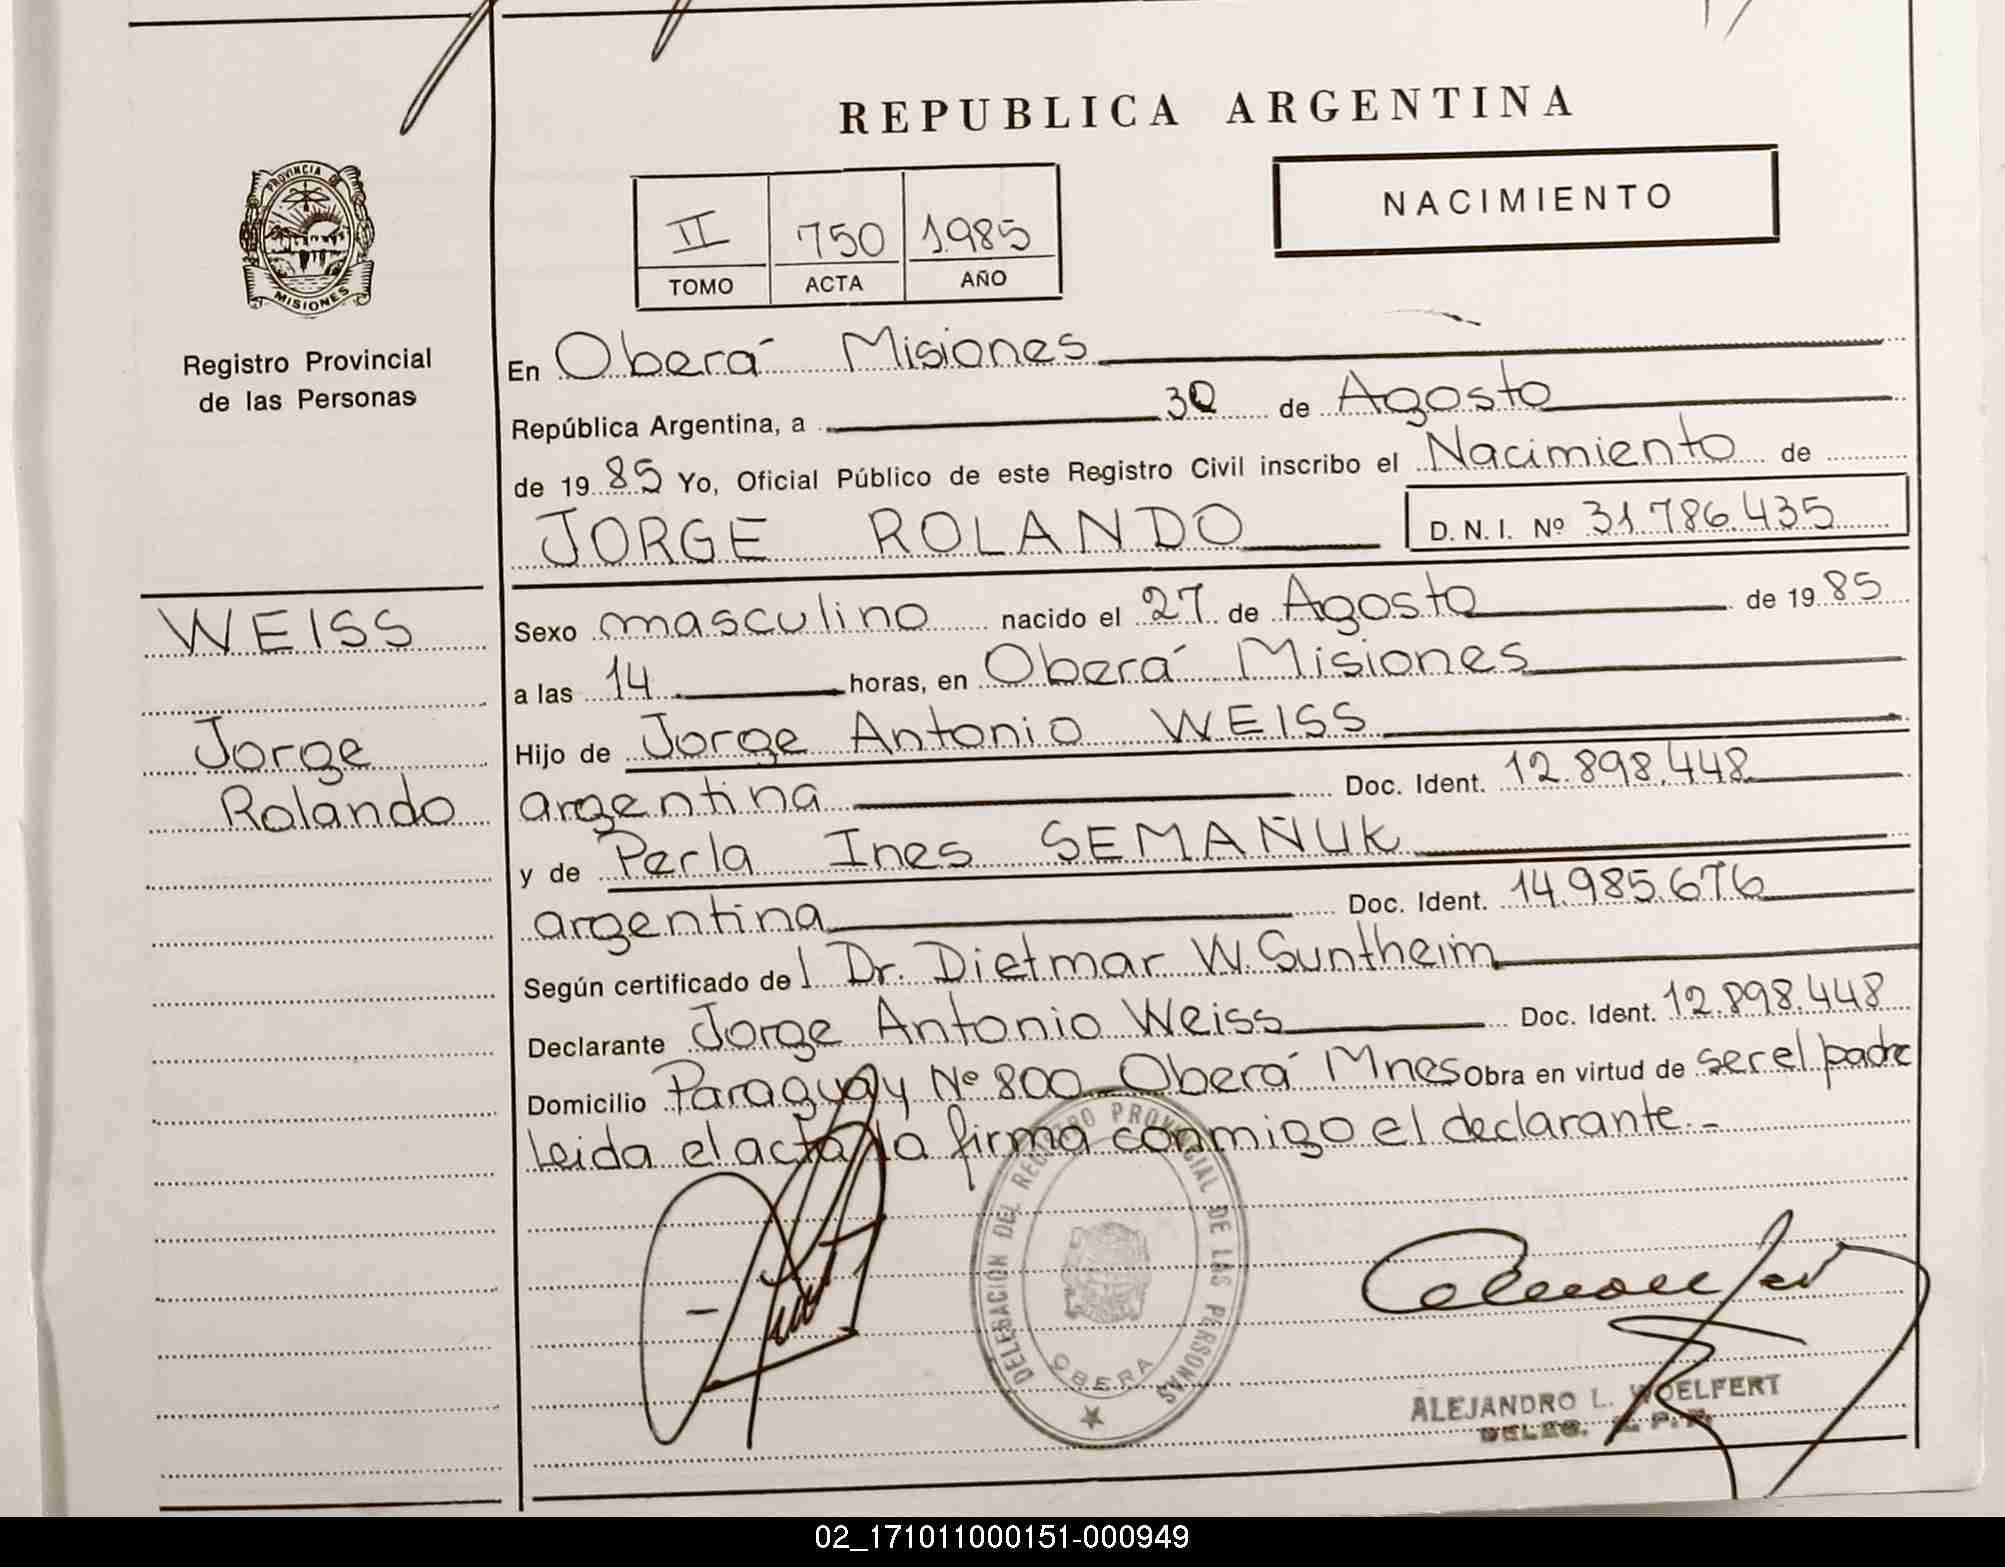 REPUBLICA ARGENTINA
PROVINCIA DE
MISIONES
Registro Provincial
de las Personas
II 750 1985
TOMO ACTA AÑO
NACIMIENTO
En Oberá Misiones
República Argentina, a 30 de Agosto
de 1985 Yo, Oficial Público de este Registro Civil inscribo el Nacimiento de
JORGE ROLANDO D.N.I. Nº 31.786.435
WEISS
Jorge
Rolando
Sexo masculino nacido el 27 de Agosto de 1985
a las 14 horas, en Oberá Misiones
Hijo de Jorge Antonio WEISS
argentina Doc. Ident. 12.898.448
y de Perla Ines SEMAÑUK
argentina Doc. Ident. 14.985.676
Según certificado del Dr. Dietmar W. Suntheim
Declarante Jorge Antonio Weiss Doc. Ident. 12.898.448
Domicilio Paraguay Nº 800 Oberá Mnes Obra en virtud de ser el padre
leida el acta la firma conmigo el declarante.-
DELEGACION DEL REGISTRO PROVINCIAL DE LAS PERSONAS
OBERA
ALEJANDRO L. WOELFERT
02_171011000151-000949